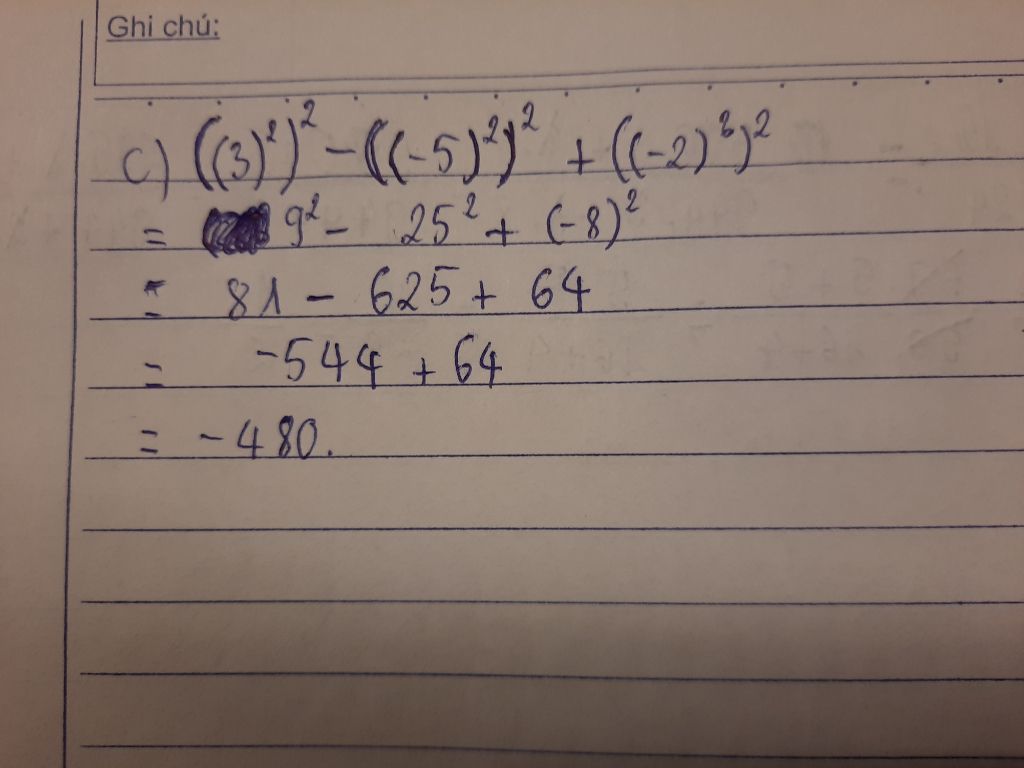 Ghi chú:
c) ((3)²)² - ((-5)²)² + ((-2)³)²
= 9² - 25² + (-8)²
= 81 - 625 + 64
= -544 + 64
= -480.